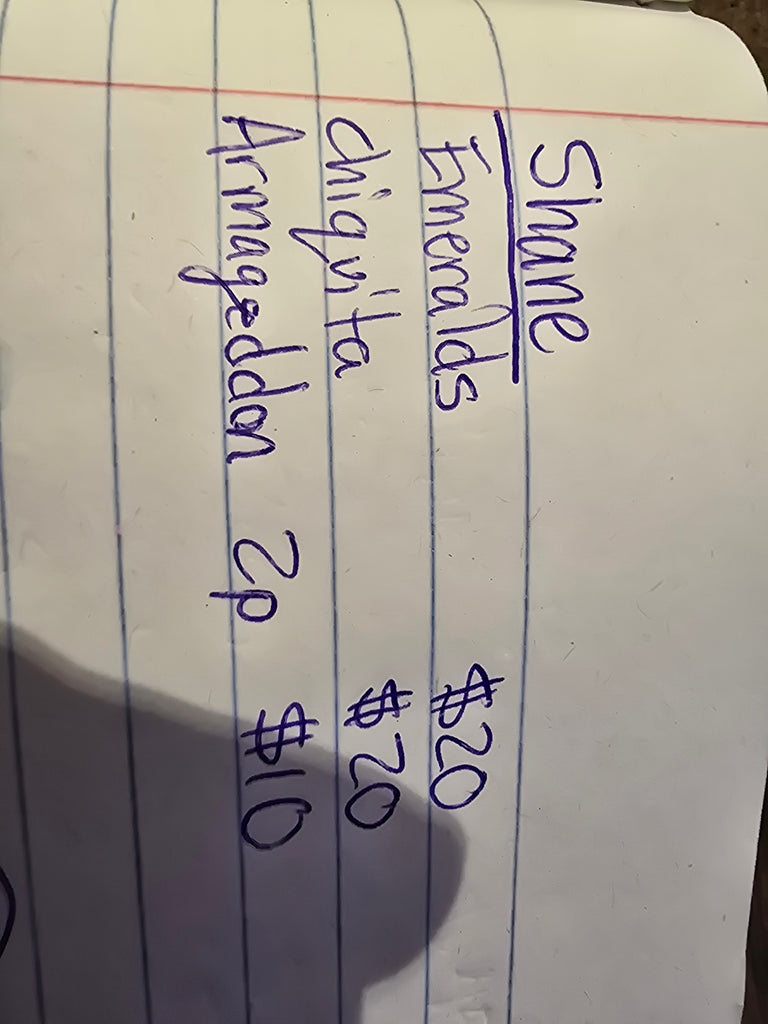 Shane
Emeralds $20
chiquita $20
Armageddon 2p $10